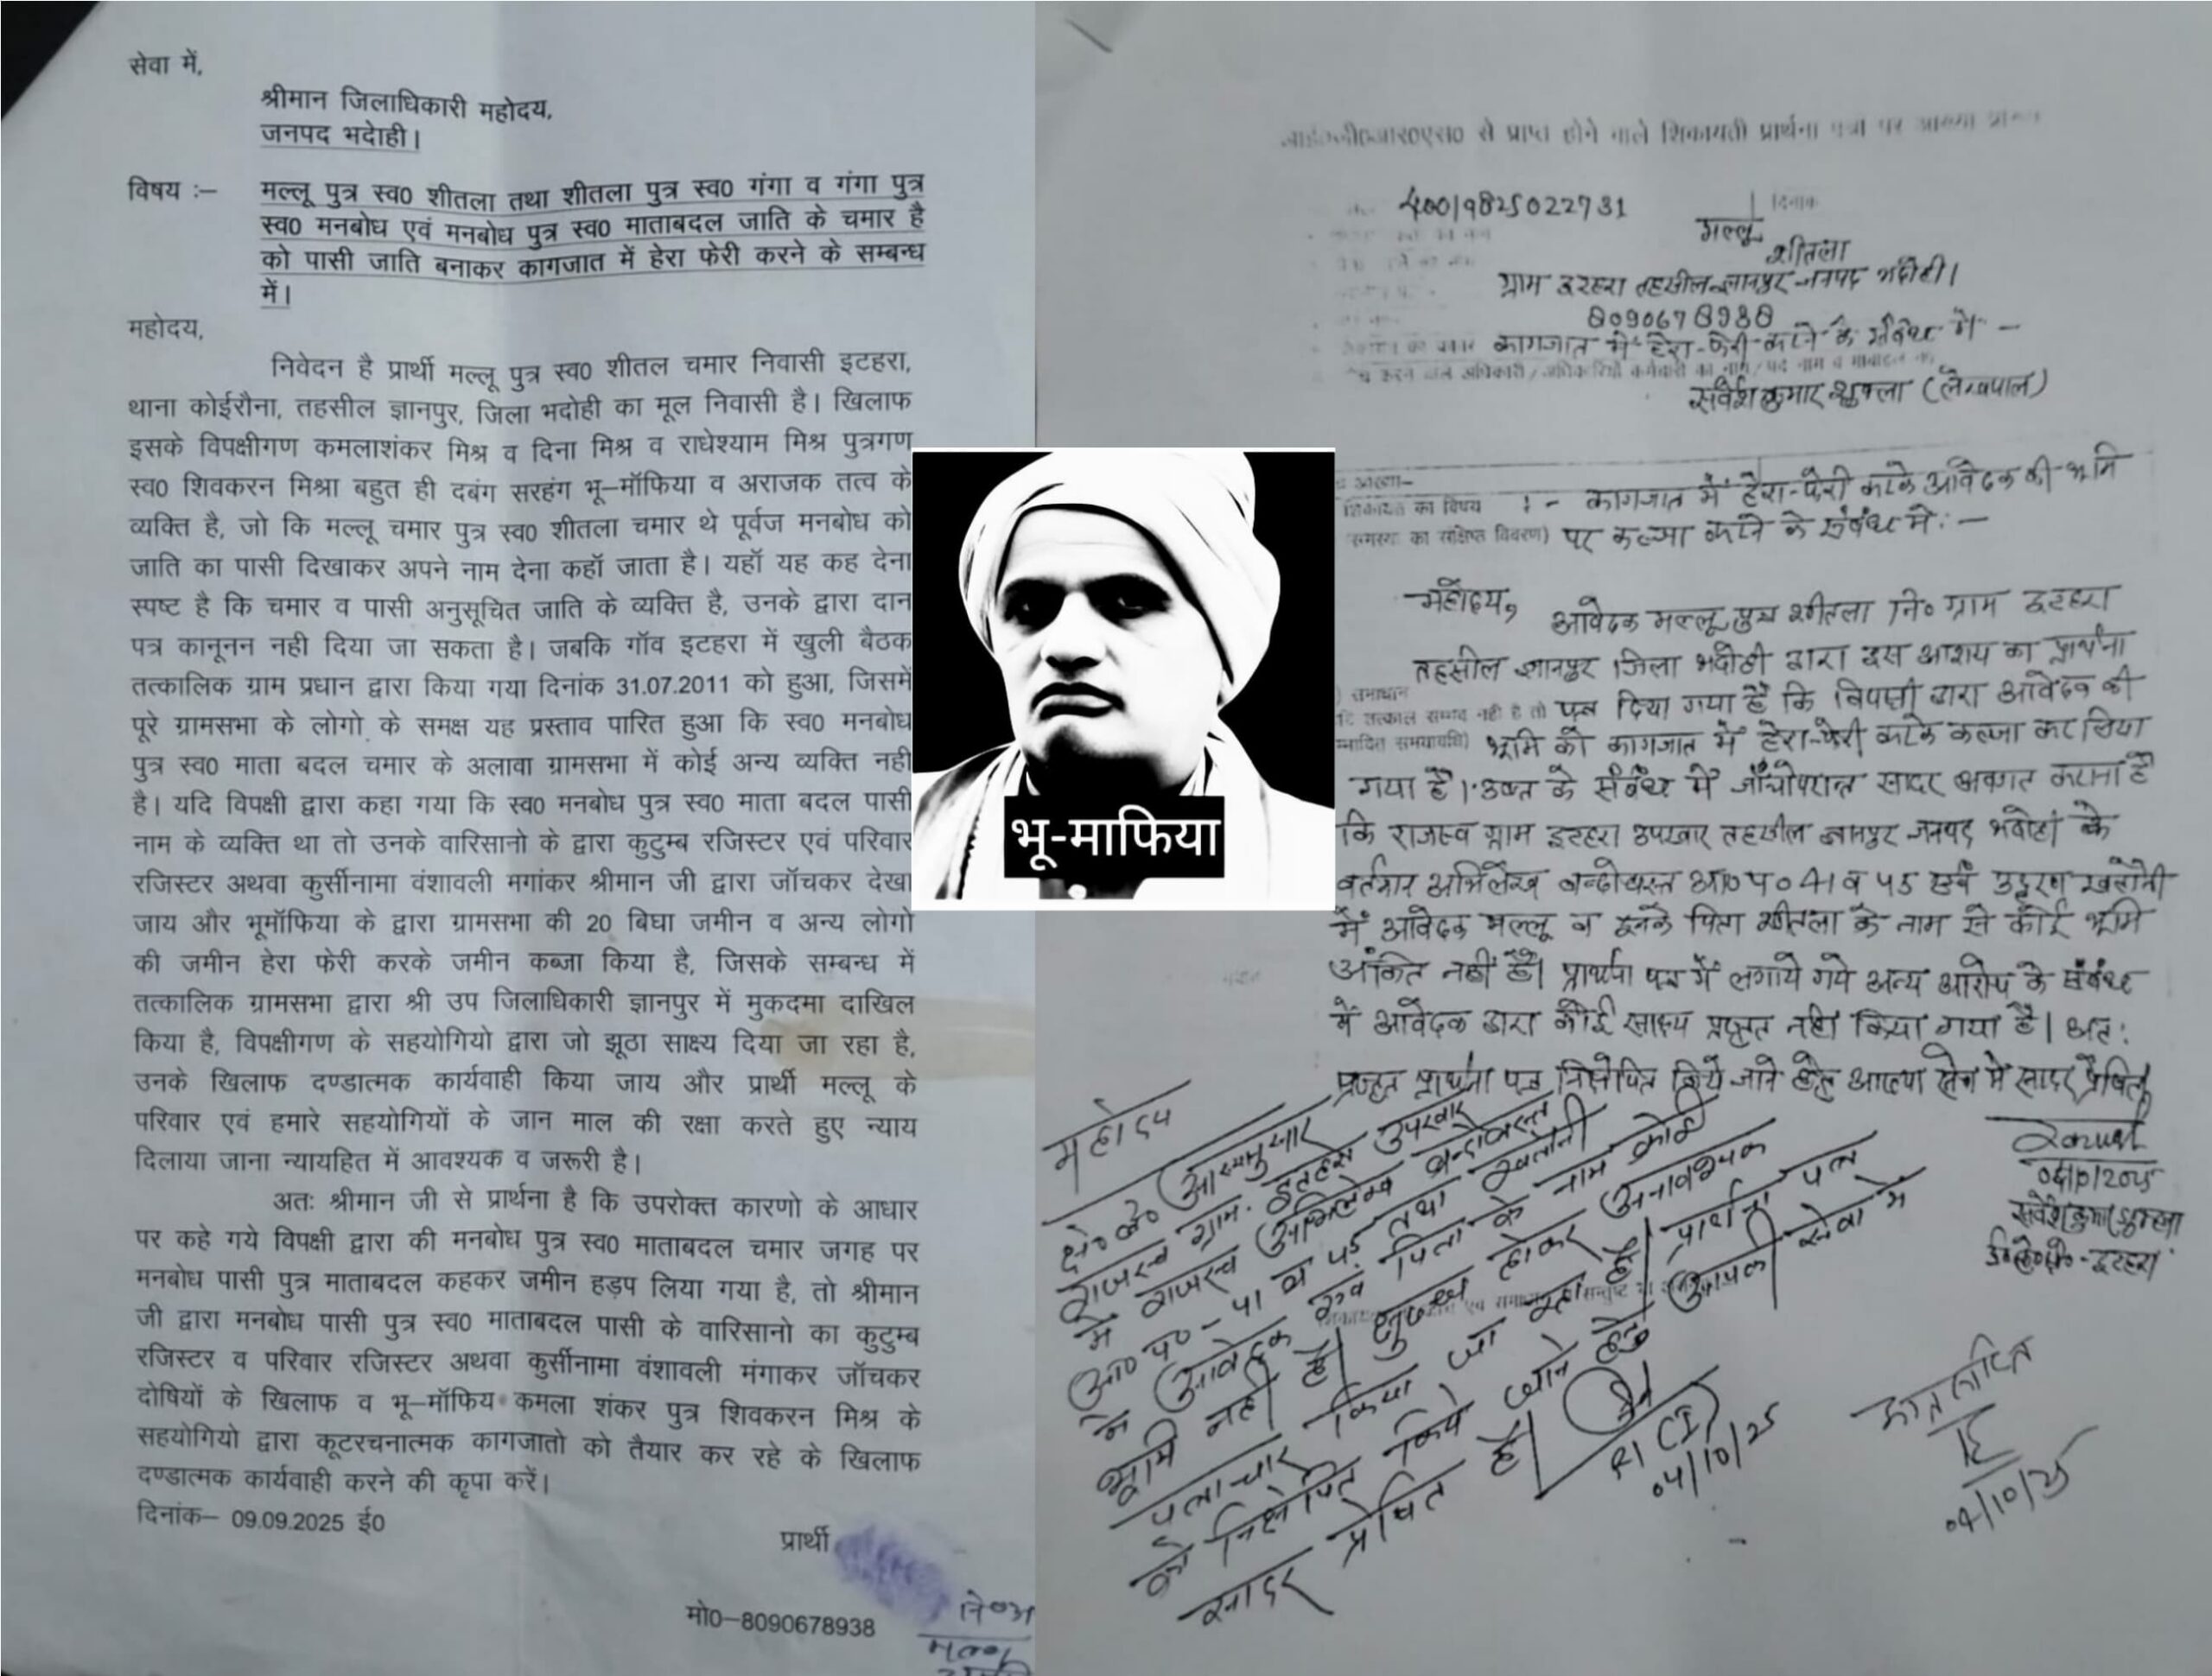 सेवा में,
श्रीमान जिलाधिकारी महोदय,
जनपद भदोही।
विषय :– मल्लू पुत्र स्व0 शीतला तथा शीतला पुत्र स्व0 गंगा व गंगा पुत्र
स्व0 मनबोध एवं मनबोध पुत्र स्व0 माताबदल जाति के चमार है
को पासी जाति बनाकर कागजात में हेरा फेरी करने के सम्बन्ध
में।
महोदय,
निवेदन है प्रार्थी मल्लू पुत्र स्व0 शीतल चमार निवासी इटहरा,
थाना कोईरौना, तहसील ज्ञानपुर, जिला भदोही का मूल निवासी है। खिलाफ
इसके विपक्षीगण कमलाशंकर मिश्र व दिना मिश्र व राधेश्याम मिश्र पुत्रगण
स्व0 शिवकरन मिश्रा बहुत ही दबंग सरहंग भू–मॉफिया व अराजक तत्व के
व्यक्ति है, जो कि मल्लू चमार पुत्र स्व0 शीतला चमार थे पूर्वज मनबोध को
जाति का पासी दिखाकर अपने नाम देना कहॉ जाता है। यहॉ यह कह देना
स्पष्ट है कि चमार व पासी अनुसूचित जाति के व्यक्ति है, उनके द्वारा दान
पत्र कानूनन नही दिया जा सकता है। जबकि गॉव इटहरा में खुली बैठक
तत्कालिक ग्राम प्रधान द्वारा किया गया दिनांक 31.07.2011 को हुआ, जिसमें
पूरे ग्रामसभा के लोगो के समक्ष यह प्रस्ताव पारित हुआ कि स्व0 मनबोध
पुत्र स्व0 माता बदल चमार के अलावा ग्रामसभा में कोई अन्य व्यक्ति नही
है। यदि विपक्षी द्वारा कहा गया कि स्व0 मनबोध पुत्र स्व0 माता बदल पासी
नाम के व्यक्ति था तो उनके वारिसानो के द्वारा कुटुम्ब रजिस्टर एवं परिवार
रजिस्टर अथवा कुर्सीनामा वंशावली मगांकर श्रीमान जी द्वारा जॉचकर देखा
जाय और भूमॉफिया के द्वारा ग्रामसभा की 20 बिघा जमीन व अन्य लोगो
की जमीन हेरा फेरी करके जमीन कब्जा किया है, जिसके सम्बन्ध में
तत्कालिक ग्रामसभा द्वारा श्री उप जिलाधिकारी ज्ञानपुर में मुकदमा दाखिल
किया है, विपक्षीगण के सहयोगियो द्वारा जो झूठा साक्ष्य दिया जा रहा है,
उनके खिलाफ दण्डात्मक कार्यवाही किया जाय और प्रार्थी मल्लू के
परिवार एवं हमारे सहयोगियों के जान माल की रक्षा करते हुए न्याय
दिलाया जाना न्यायहित में आवश्यक व जरूरी है।
अतः श्रीमान जी से प्रार्थना है कि उपरोक्त कारणो के आधार
पर कहे गये विपक्षी द्वारा की मनबोध पुत्र स्व0 माताबदल चमार जगह पर
मनबोध पासी पुत्र माताबदल कहकर जमीन हड़प लिया गया है, तो श्रीमान
जी द्वारा मनबोध पासी पुत्र स्व0 माताबदल पासी के वारिसानो का कुटुम्ब
रजिस्टर व परिवार रजिस्टर अथवा कुर्सीनामा वंशावली मंगाकर जॉचकर
दोषियों के खिलाफ व भू–मॉफिय कमला शंकर पुत्र शिवकरन मिश्र के
सहयोगियो द्वारा कूटरचनात्मक कागजातो को तैयार कर रहे के खिलाफ
दण्डात्मक कार्यवाही करने की कृपा करें।
दिनांक– 09.09.2025 ई0
प्रार्थी
मो0–8090678938
भू-माफिया
से प्राप्त होने वाले शिकायती प्रार्थना पत्रों पर आख्या
40019825022731
दिनांक
मल्लू
शीतला
ग्राम इटहरा तहसील-ज्ञानपुर-जनपद भदोही।
8090678938
कागजात में हेरा-फेरी करने के संबंध में। –
सर्वेश कुमार शुक्ला (लेखपाल)
शिकायत का विषय :- कागजात में हेरा-फेरी करके आवेदक की भूमि
समस्या का संक्षिप्त विवरण) पर कब्जा करने के संबंध में:–
महोदय,
आवेदक मल्लू पुत्र शीतला नि० ग्राम इटहरा
तहसील ज्ञानपुर जिला भदोही द्वारा इस आशय का प्रार्थना
समाधान
तत्काल सम्भव नही है तो पत्र दिया गया है कि विपक्षी द्वारा आवेदक की
समयावधि) भूमि को कागजात में हेरा-फेरी करके कब्जा कर लिया
गया है। उक्त के संबंध में जाँचोपरान्त सादर अवगत कराना है
कि राजस्व ग्राम इटहरा उपरवार तहसील ज्ञानपुर जनपद भदोही के
वर्तमान अभिलेख बन्दोबस्त आ० प० 41 व 45 एवं उद्धरण खतौनी
में आवेदक मल्लू व इनके पिता शीतला के नाम से कोई भूमि
अंकित नही है। प्रार्थना पत्र में लगाये गये अन्य आरोप के संबंध
में आवेदक द्वारा कोई साक्ष्य प्रस्तुत नही किया गया है। अत:
प्रस्तुत प्रार्थना पत्र निक्षेपित किये जाने हेतु आख्या सेवा में सादर प्रेषित
सर्वेश कुमार शुक्ला
महोदय
क्षे० ले० आख्यानुसार
राजस्व ग्राम- इटहरा उपरवार
में राजस्व अभिलेख बन्दोबस्त
आ० प०- 41 व 45 तथा खतौनी
में आवेदक एवं पिता के नाम कोई
भूमि नही है। क्षुब्ध होकर अनावश्यक
पत्राचार किया जा रहा है। प्रार्थना पत्र
को निक्षेपित किये जाने हेतु आपकी सेवा में
सादर प्रेषित है।
04/10/25
04/10/25